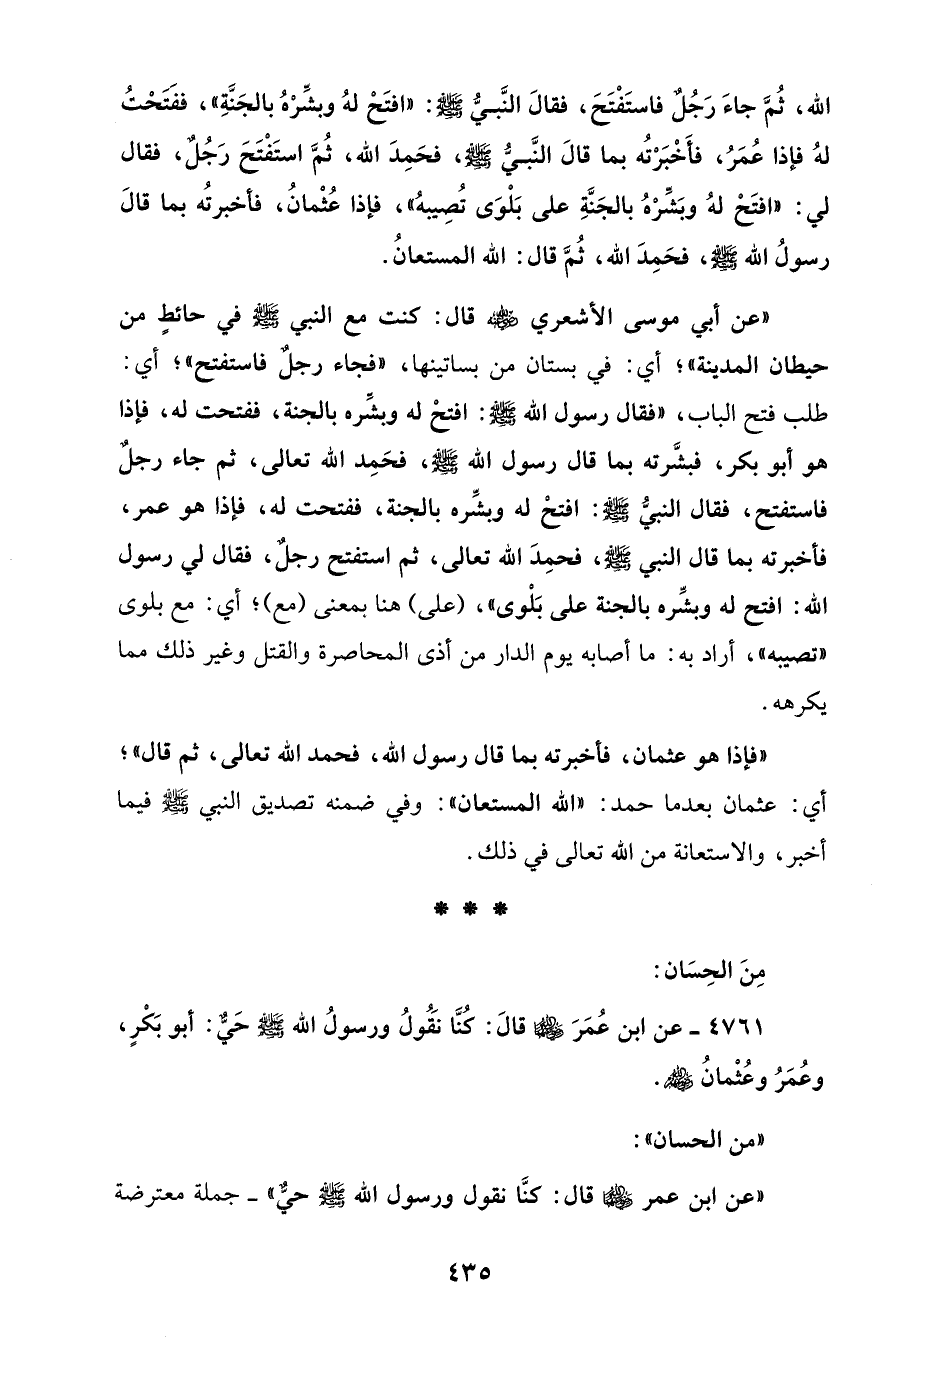 الله، ثُمَّ جاءَ رَجُلٌ فاستَفْتَحَ، فقالَ النَّبيُّ ﷺ: «افتَحْ لهُ وبشِّرْهُ بالجَنَّةِ»، ففَتَحْتُ
لهُ فإذا عُمَرُ، فأَخْبَرْتُه بما قالَ النَّبيُّ ﷺ، فحَمِدَ الله، ثُمَّ استَفْتَحَ رَجُلٌ، فقال
لي: «افتَحْ لهُ وبَشِّرْهُ بالجَنَّةِ على بَلْوَى تُصِيبهُ»، فإذا عُثْمانُ، فأخبرتُه بما قالَ
رسولُ الله ﷺ، فحَمِدَ الله، ثُمَّ قال: الله المستعانُ.
«عن أبي موسى الأشعري ﵁ قال: كنت مع النبي ﷺ في حائطٍ من
حيطان المدينة»؛ أي: في بستان من بساتينها، «فجاء رجلٌ فاستفتح»؛ أي:
طلب فتح الباب، «فقال رسول الله ﷺ: افتحْ له وبشِّره بالجنة، ففتحت له، فإذا
هو أبو بكر، فبشَّرته بما قال رسول الله ﷺ، فحَمِد الله تعالى، ثم جاء رجلٌ
فاستفتح، فقال النبيُّ ﷺ: افتحْ له وبشِّره بالجنة، ففتحت له، فإذا هو عمر،
فأخبرته بما قال النبي ﷺ، فحمِدَ الله تعالى، ثم استفتح رجلٌ، فقال لي رسول
الله: افتح له وبشِّره بالجنة على بَلْوى»، (على) هنا بمعنى (مع)؛ أي: مع بلوى
«تصيبه»، أراد به: ما أصابه يوم الدار من أذى المحاصرة والقتل وغير ذلك مما
يكرهه.
«فإذا هو عثمان، فأخبرته بما قال رسول الله، فحمد الله تعالى، ثم قال»؛
أي: عثمان بعدما حمد: «الله المستعان»: وفي ضمنه تصديق النبي ﷺ فيما
أخبر، والاستعانة من الله تعالى في ذلك.
* * *
مِنَ الحِسَان:
٤٧٦١ ـ عن ابن عُمَرَ ﵄ قالَ: كُنَّا نَقُولُ ورسولُ الله ﷺ حَيٌّ: أبو بَكْرٍ،
وعُمَرُ وعُثْمانُ ﵃.
«من الحسان»:
«عن ابن عمر ﵄ قال: كنَّا نقول ورسول الله ﷺ حيٌّ» ـ جملة معترضة
٤٣٥